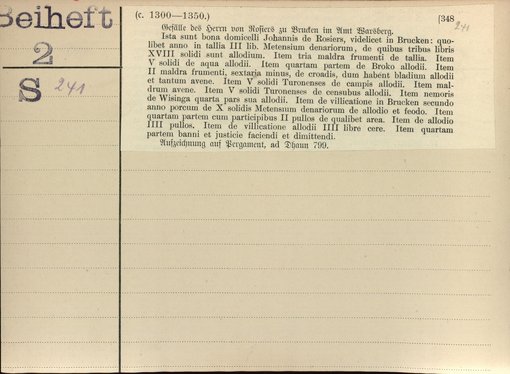 Beiheft
2
S 241
(c. 1300—1350.) [348
241
Gefälle des Herrn von Rosiers zu Brucken im Amt Warsberg.
Ista sunt bona domicelli Johannis de Rosiers, videlicet in Brucken: quo-
libet anno in tallia III lib. Metensium denariorum, de quibus tribus libris
XVIII solidi sunt allodium. Item tria maldra frumenti de tallia. Item
V solidi de aqua allodii. Item quartam partem de Broko allodii. Item
II maldra frumenti, sextaria minus, de croadis, dum habent bladium allodii
et tantum avene. Item V solidi Turonenses de campis allodii. Item mal-
drum avene. Item V solidi Turonenses de censubus allodii. Item nemoris
de Wisinga quarta pars sua allodii. Item de villicatione in Brucken secundo
anno porcum de X solidis Metensium denariorum de allodio et feodo. Item
quartam partem cum participibus II pullos de qualibet area. Item de allodio
IIII pullos. Item de villicatione allodii IIII libre cere. Item quartam
partem banni et justicie faciendi et dimittendi.
Aufzeichnung auf Pergament, ad Dhaun 799.